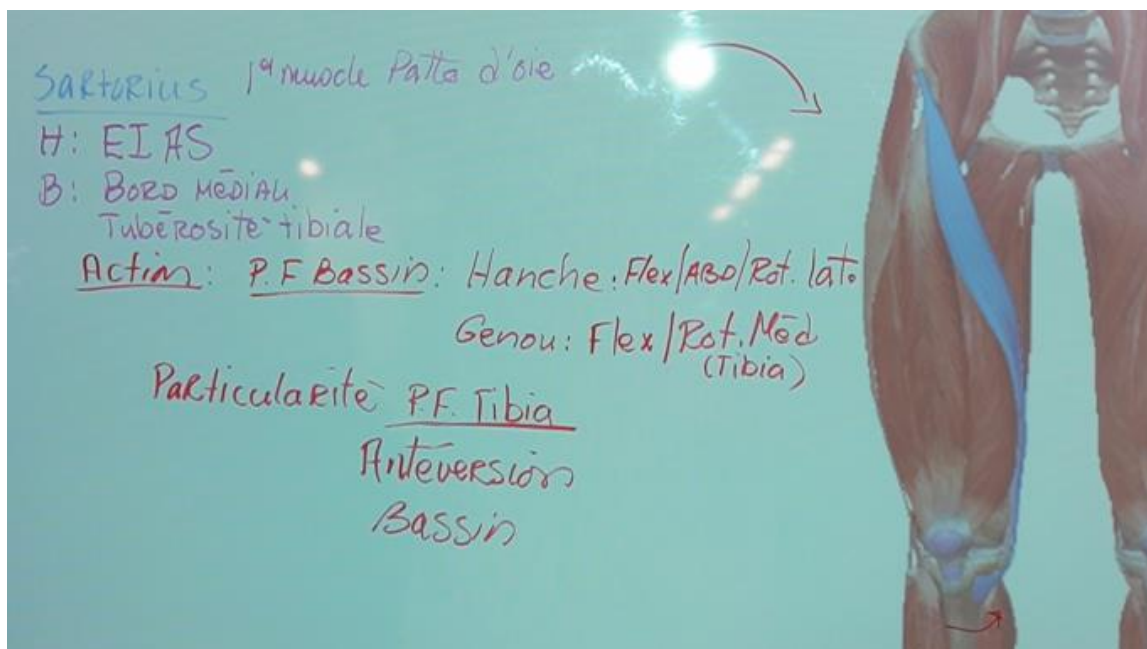 Sartorius 1er muscle Patte d'oie
H: EIAS
B: BORD MÉDIAL
Tubérosité tibiale
Action: P.F Bassin: Hanche: Flex/ABD/Rot. lat.
Genou: Flex/Rot. Méd
(Tibia)
Particularité P.F. Tibia
Antéversion
Bassin